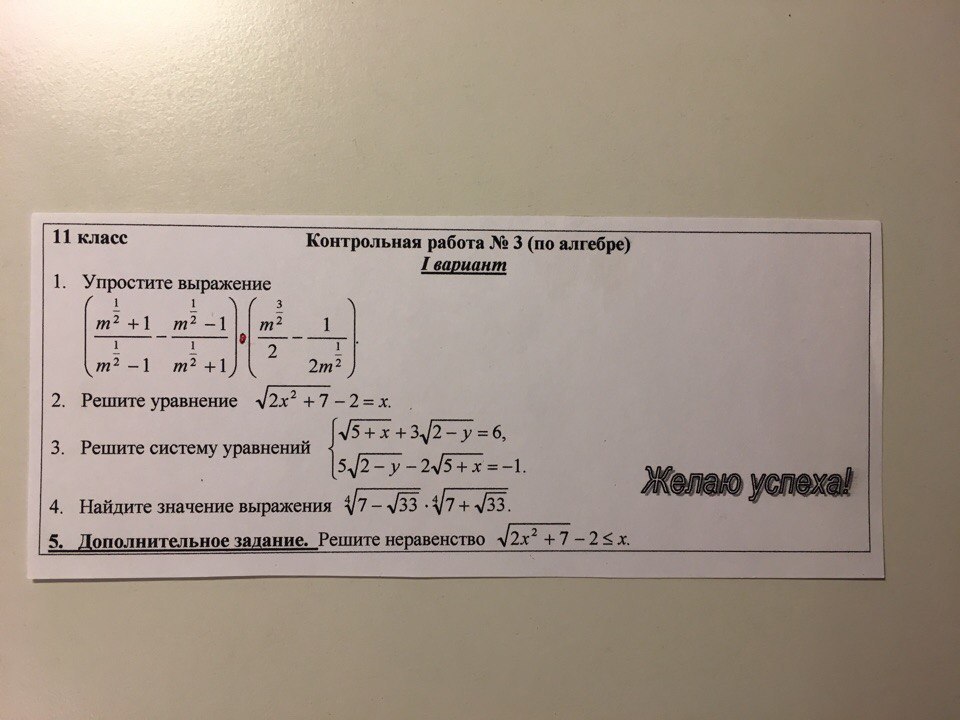 11 класс
Контрольная работа № 3 (по алгебре)
I вариант
1. Упростите выражение
$\left(\frac{m^{\frac{1}{2}}+1}{m^{\frac{1}{2}}-1}-\frac{m^{\frac{1}{2}}-1}{m^{\frac{1}{2}}+1}\right)\cdot\left(\frac{m^{\frac{3}{2}}}{2}-\frac{1}{2m^{\frac{1}{2}}}\right).$
2. Решите уравнение $\sqrt{2x^2+7}-2=x.$
3. Решите систему уравнений $\begin{cases}\sqrt{5+x}+3\sqrt{2-y}=6,\\5\sqrt{2-y}-2\sqrt{5+x}=-1.\end{cases}$
Желаю успеха!
4. Найдите значение выражения $\sqrt[4]{7-\sqrt{33}}\cdot\sqrt[4]{7+\sqrt{33}}.$
5. Дополнительное задание. Решите неравенство $\sqrt{2x^2+7}-2\le x.$